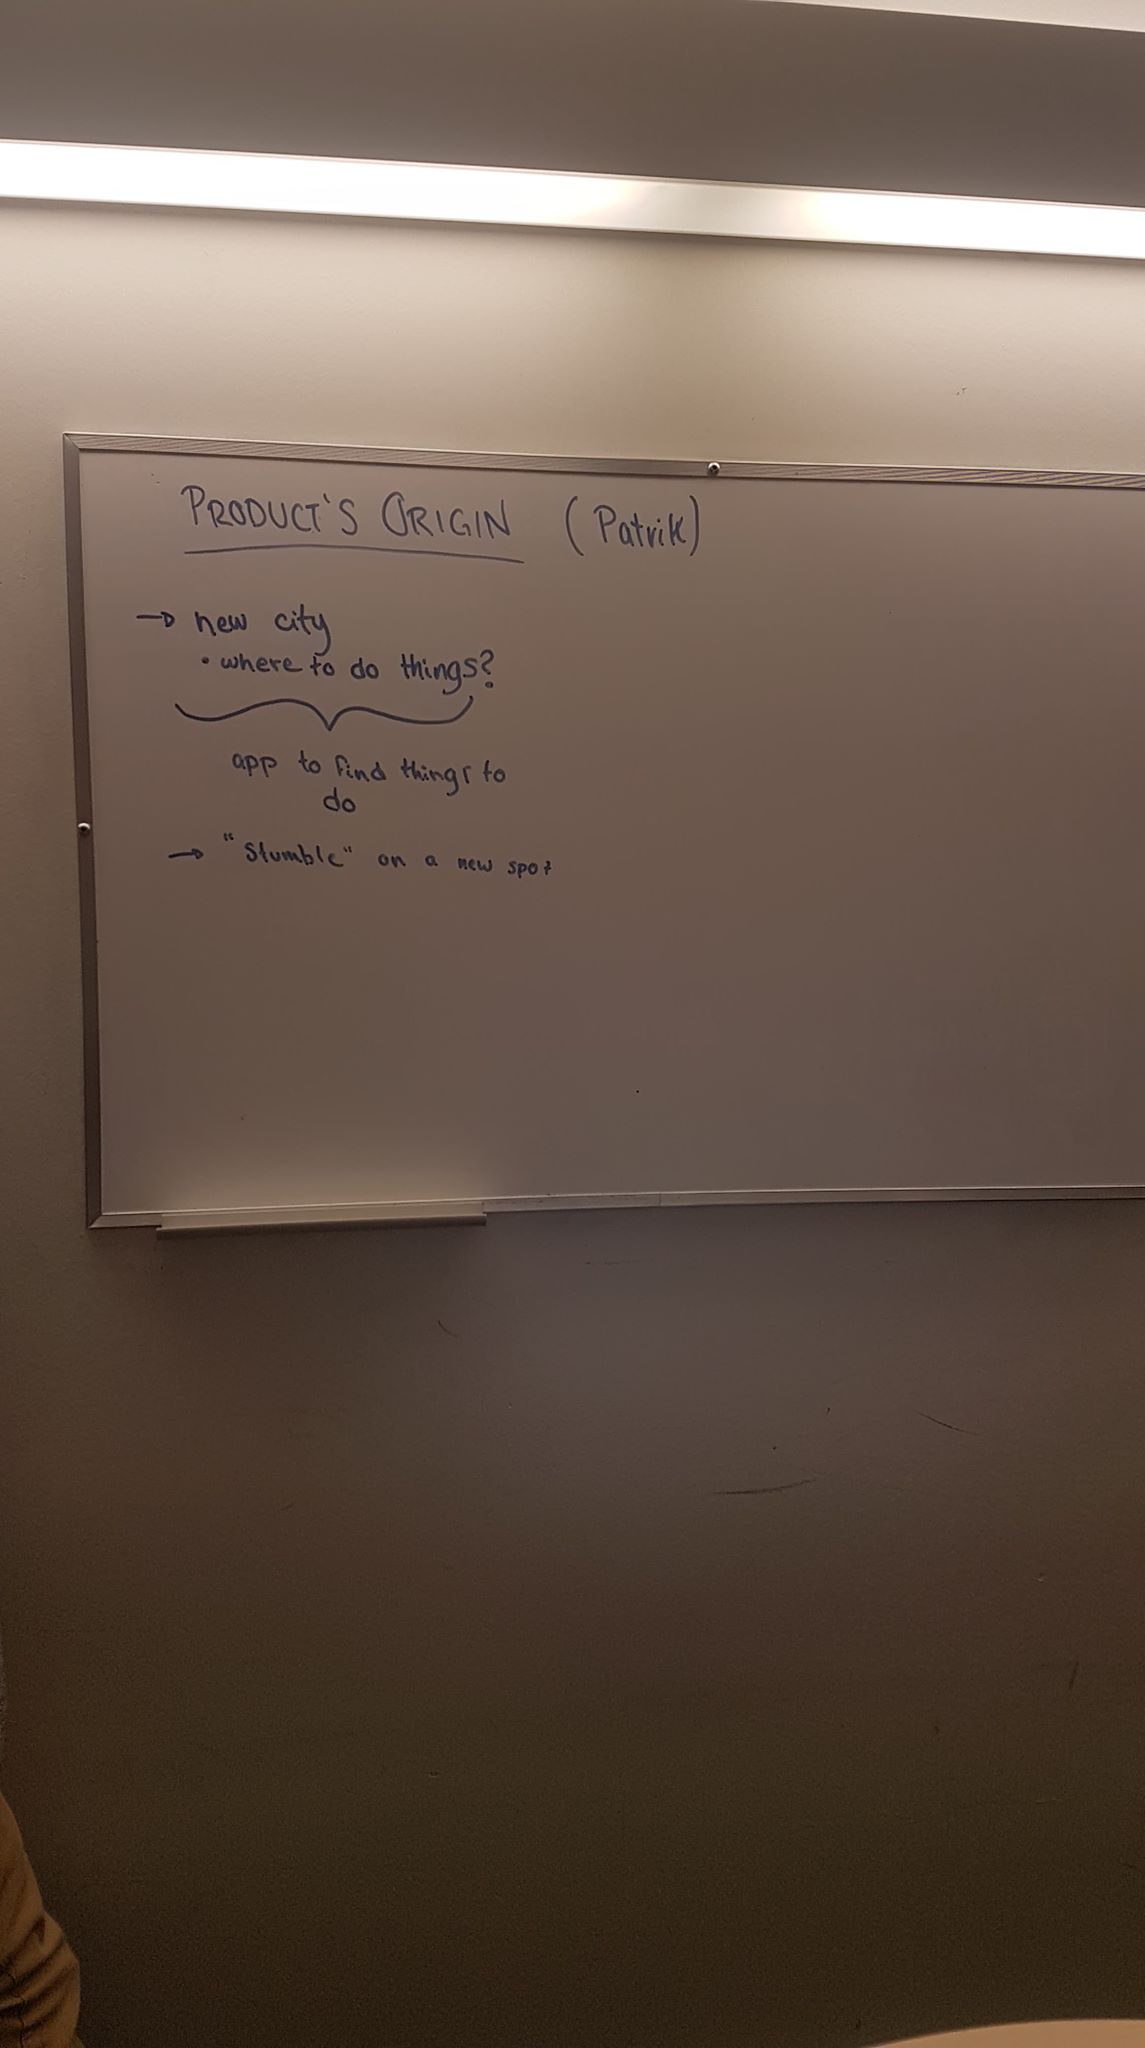 PRODUCT'S ORIGIN (Patrik)
→ new city
• where to do things?
app to find things to
do
→ "Stumble" on a new spot